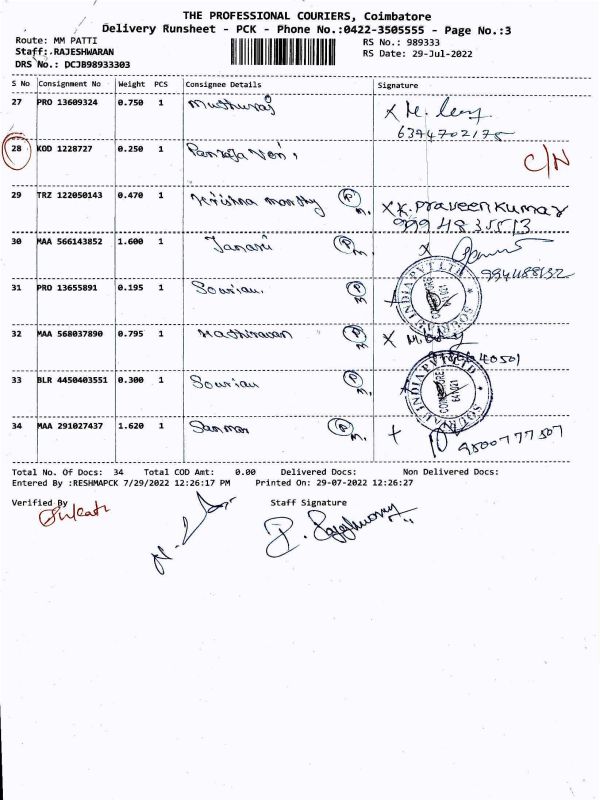 THE PROFESSIONAL COURIERS, Coimbatore
Delivery Runsheet - PCK - Phone No.:0422-3505555 - Page No.:3
Route: MM PATTI
RS No.: 989333
Staff: RAJESHWARAN
RS Date: 29-Jul-2022
DRS No.: DCJB98933303
S No Consignment No Weight PCS Consignee Details Signature
27 PRO 13609324 0.750 1 Muthuraj
6394702175
28 KOD 1228727 0.250 1 Pankaja Veni C/N
29 TRZ 122050143 0.470 1 Krishna moorthy P M. X K. Praveen Kumar
9994835513
30 MAA 566143852 1.600 1 P M. X
9941188132
31 PRO 13655891 0.195 1 Sourian. P M
32 MAA 568037890 0.795 1 Mathiravan P M. X
33 BLR 4450403551 0.300 1 Sourian P M.
COIMBATORE
641021
34 MAA 291027437 1.620 1 P M.
9500777507
Total No. Of Docs: 34 Total COD Amt: 0.00 Delivered Docs: Non Delivered Docs:
Entered By :RESHMAPCK 7/29/2022 12:26:17 PM Printed On: 29-07-2022 12:26:27
Verified By Staff Signature